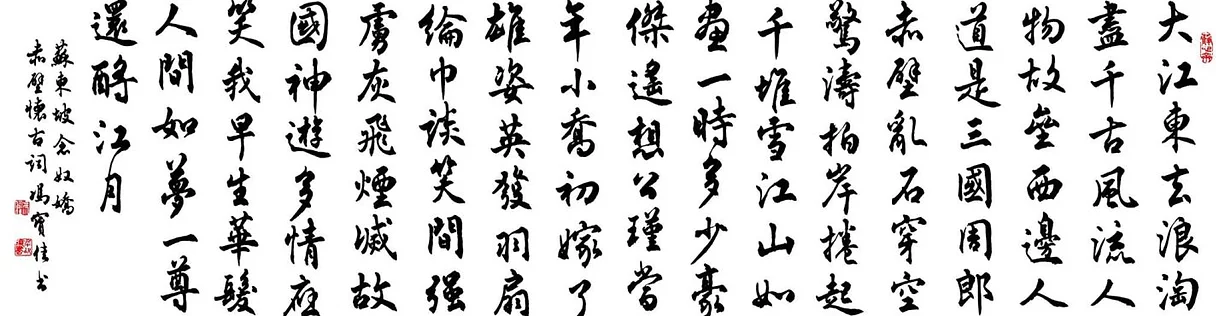 大江東去浪淘
盡千古風流人
物故壘西邊人
道是三國周郎
赤壁亂石穿空
驚濤拍岸捲起
千堆雪江山如
畫一時多少豪
傑遙想公瑾當
年小喬初嫁了
雄姿英發羽扇
綸巾談笑間强
虜灰飛煙滅故
國神遊多情應
笑我早生華髮
人間如夢一尊
還酹江月
蘇東坡念奴嬌
赤壁懷古詞馮寶佳书